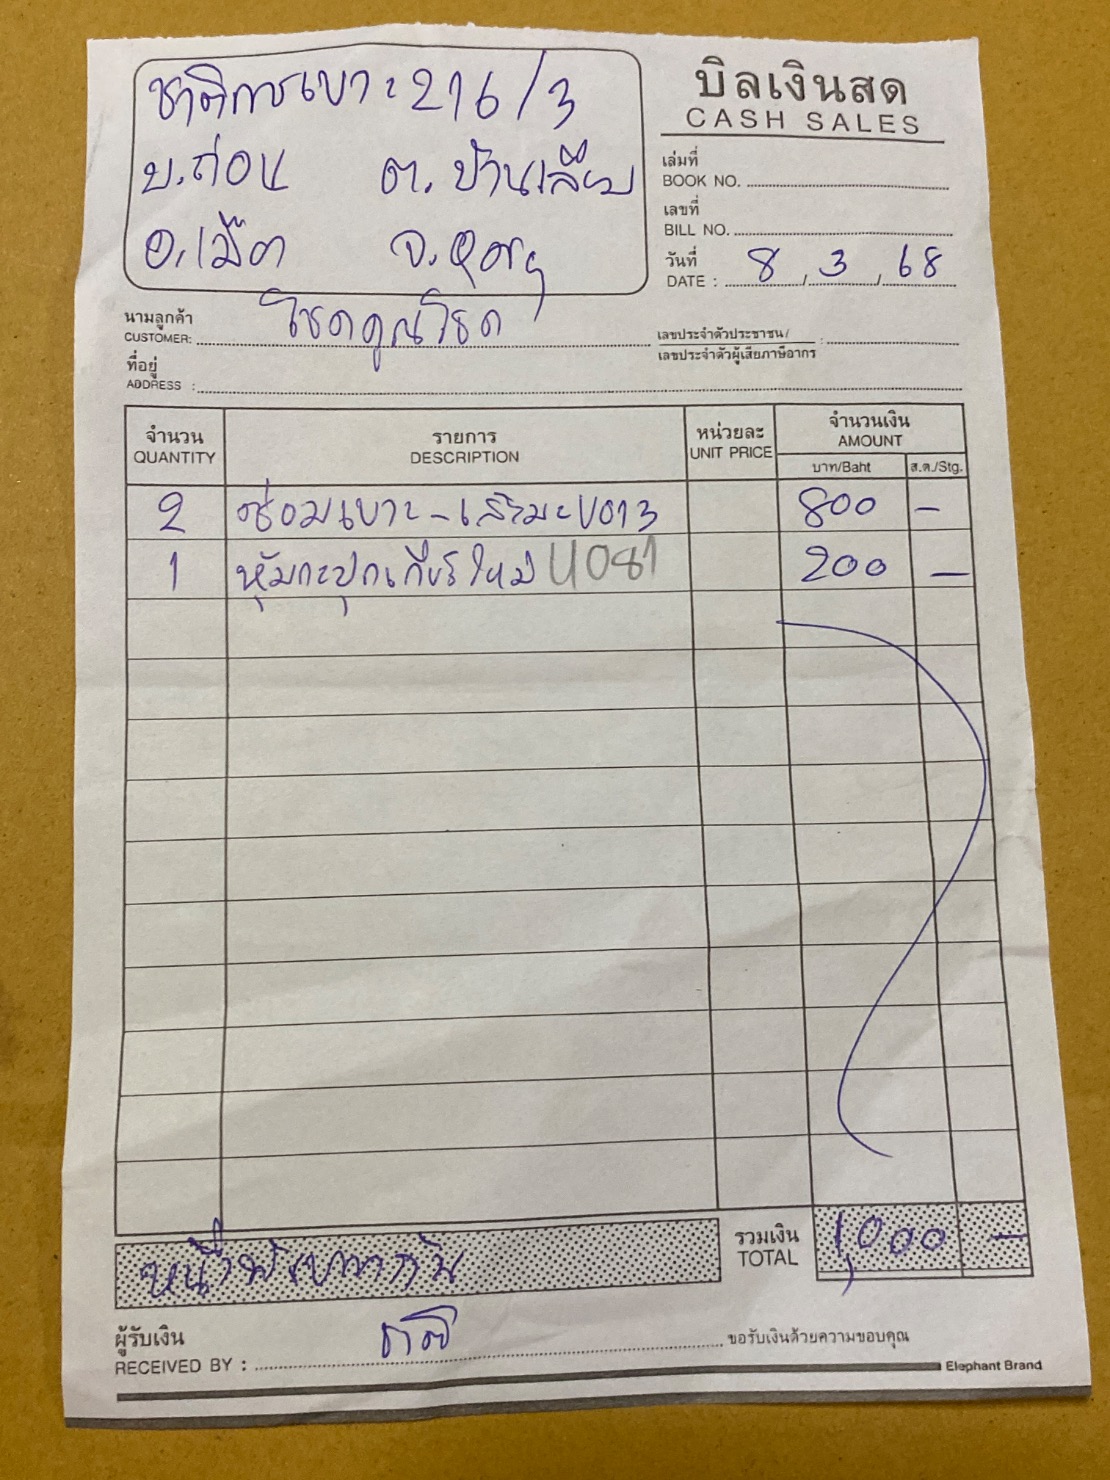 ชาติการเบาะ 216/3
บ.ถ่อน ต.บ้านเลื่อม
อ.เมือง จ.อุดรฯ
บิลเงินสด
CASH SALES
เล่มที่
BOOK NO.
เลขที่
BILL NO.
วันที่
DATE : 8 / 3 / 68
นามลูกค้า
CUSTOMER: โชคคูณโชค
เลขประจำตัวประชาชน/ :
เลขประจำตัวผู้เสียภาษีอากร
ที่อยู่
ADDRESS :
จำนวน รายการ หน่วยละ จำนวนเงิน
QUANTITY DESCRIPTION UNIT PRICE AMOUNT
บาท/Baht ส.ต./Stg.
2 ซ่อมเบาะ - 800 -
1 หุ้มกะปุกเกียร์ใหม่ 200 -
รวมเงิน
TOTAL 1,000 -
หนึ่งพันบาท
ผู้รับเงิน
RECEIVED BY : ชาติ ขอรับเงินด้วยความขอบคุณ
Elephant Brand